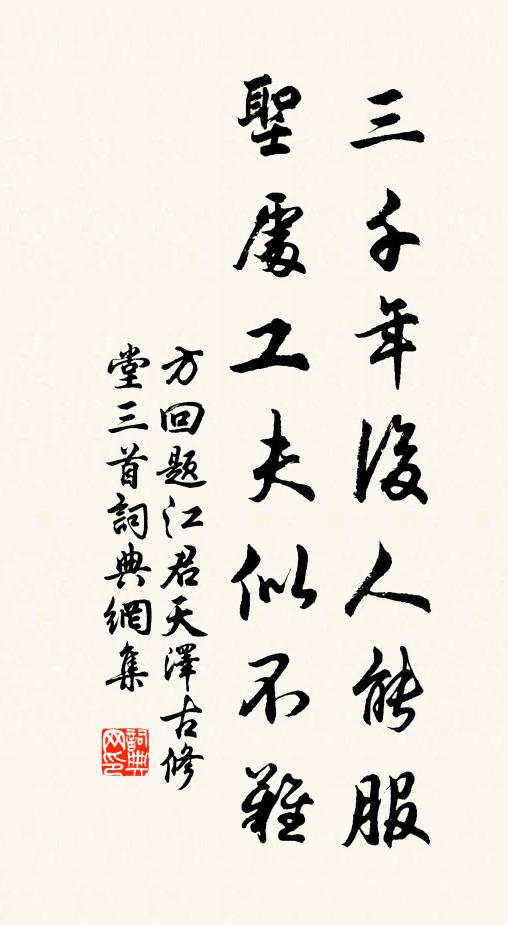 三千年後人能服
聖處工夫似不難
方回題江君天澤古修
堂三首詞典網集
詞典網印